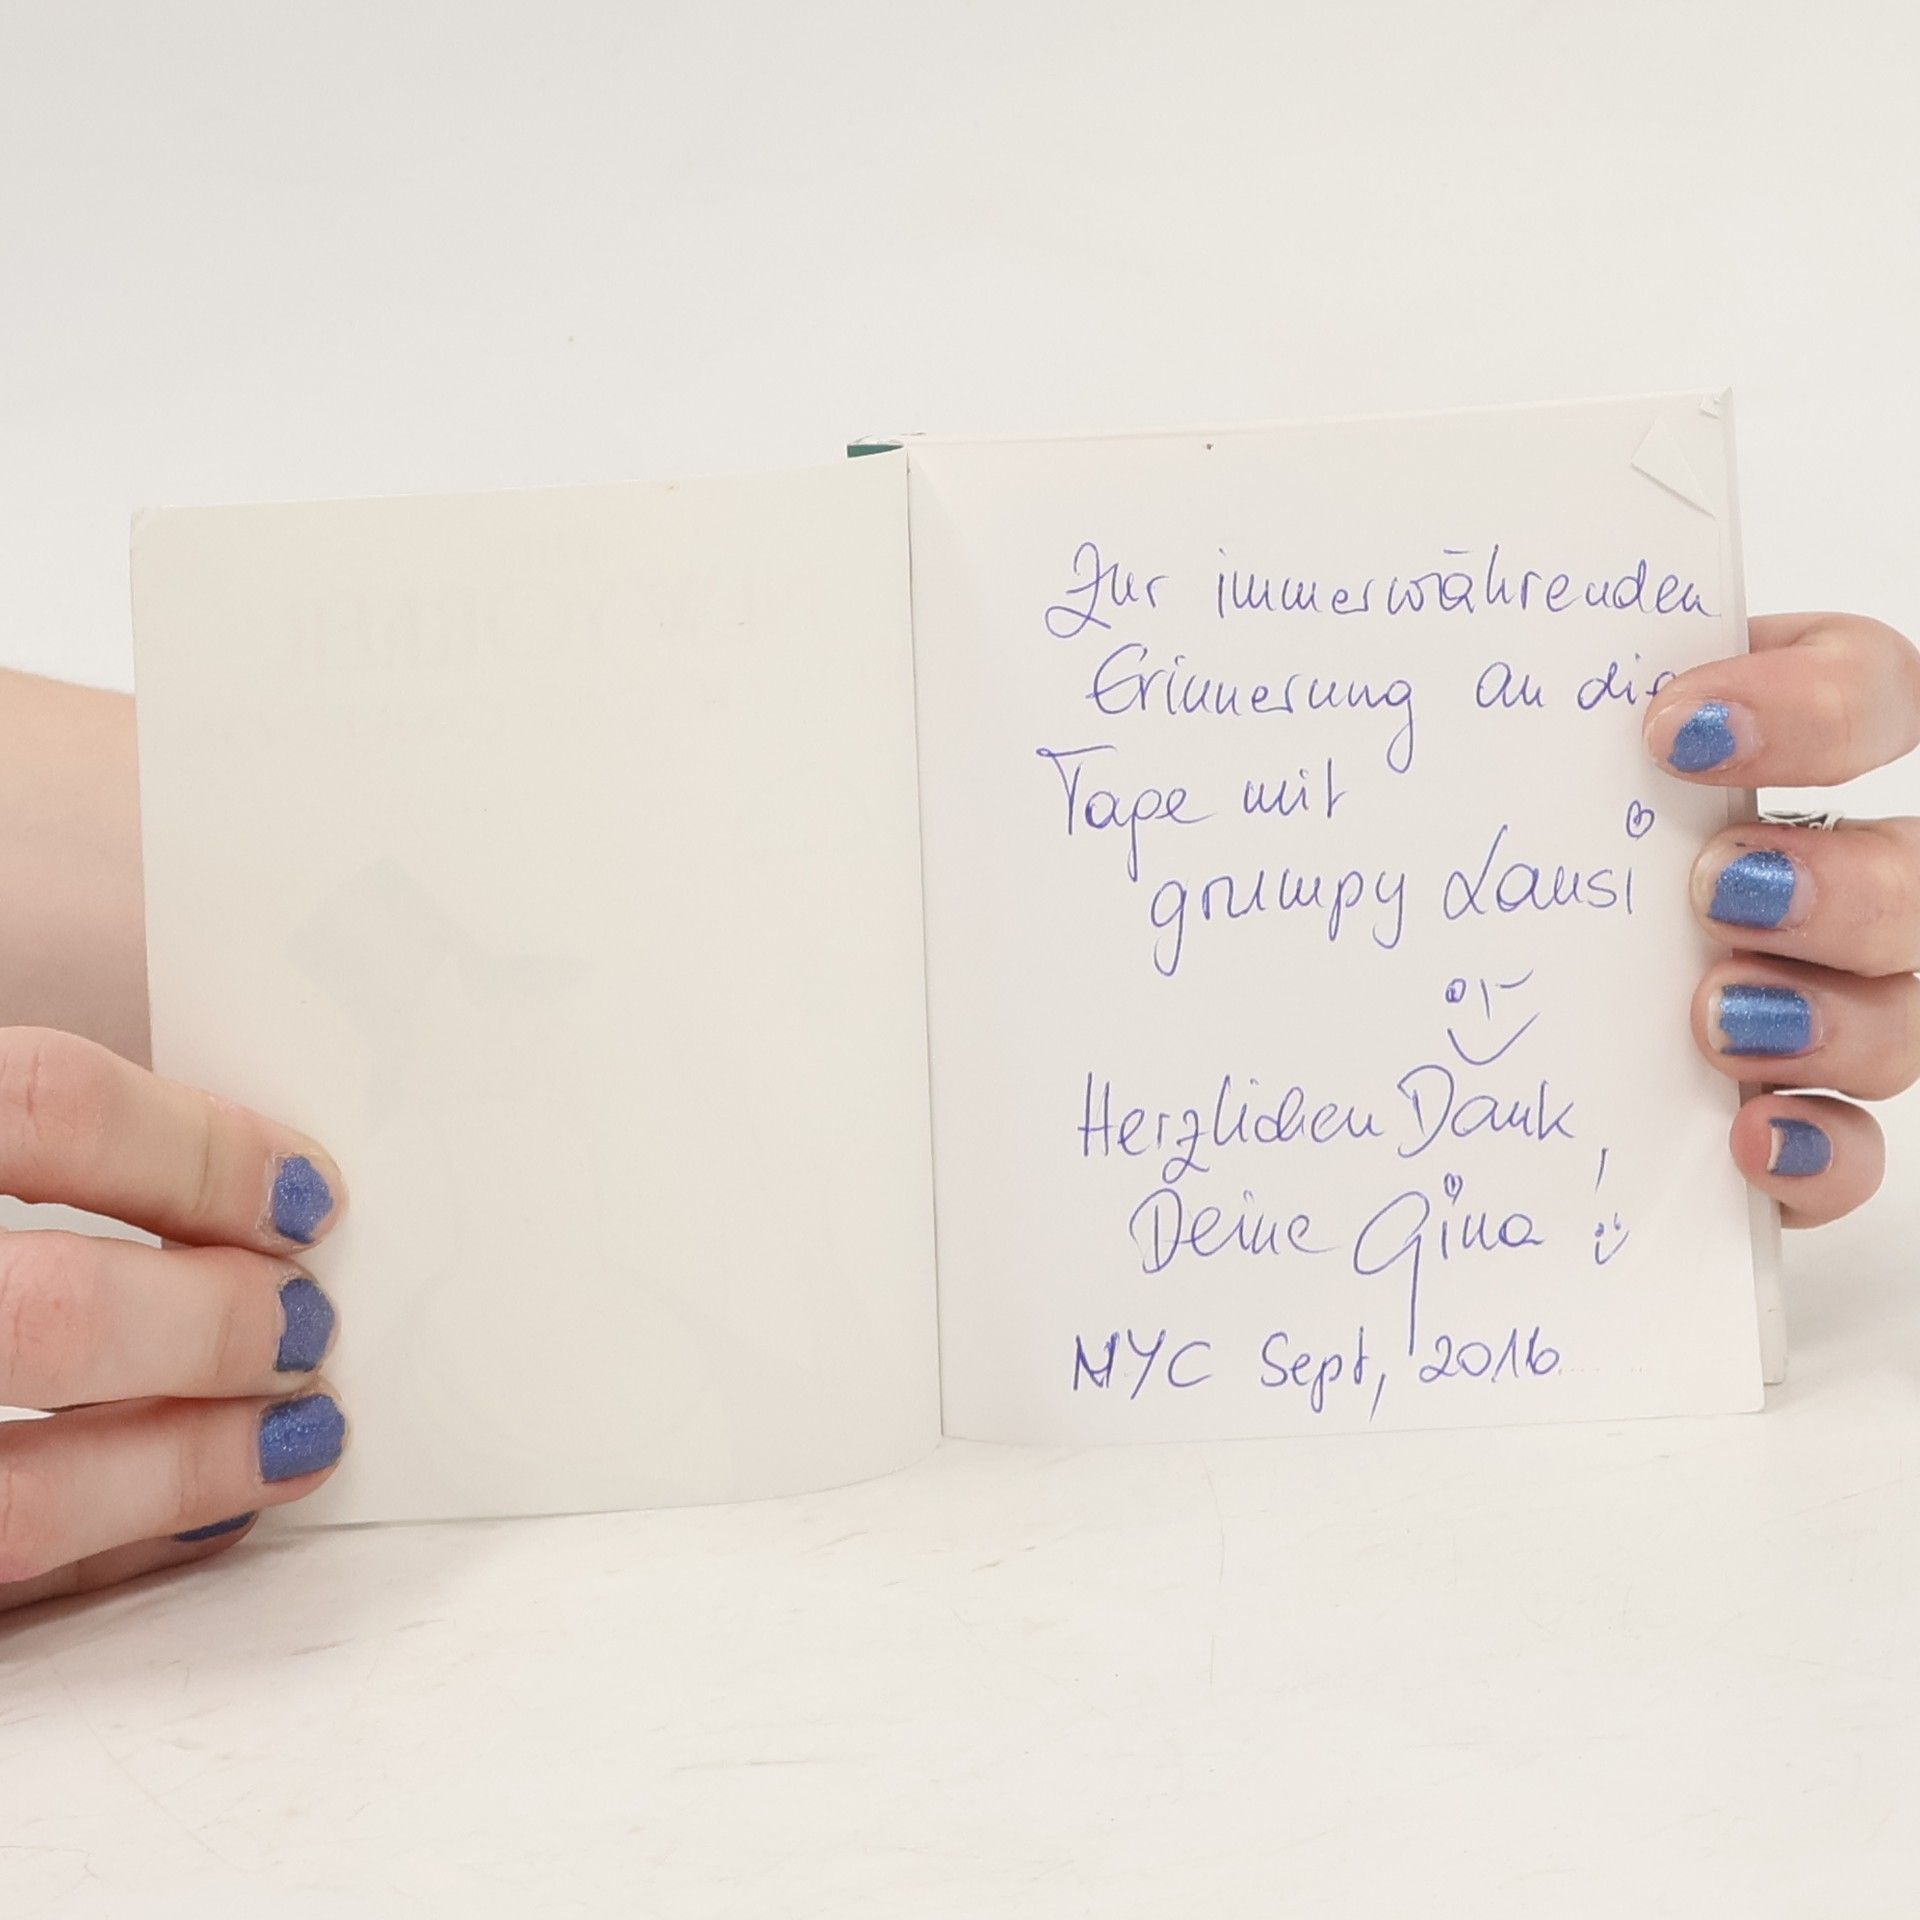 Zur immerwährenden
Erinnerung an die
Tape mit
grumpy Lausi
Herzlichen Dank,
Deine Gina
NYC Sept, 2016